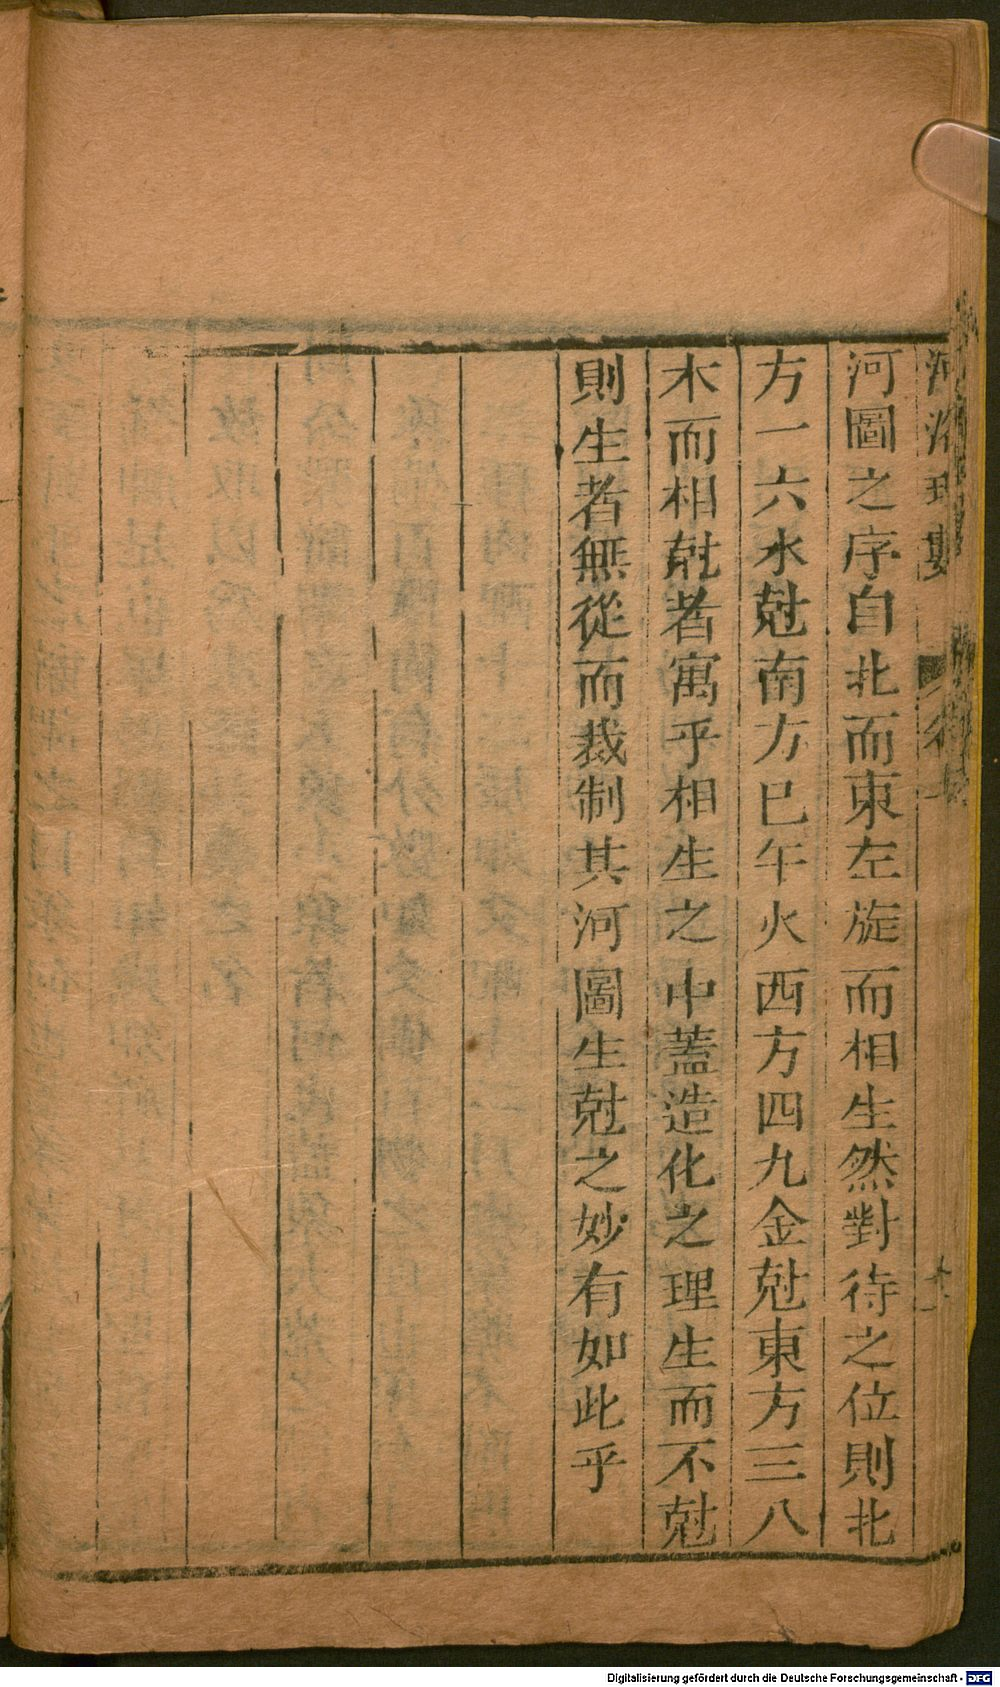 河圖之序自北而東左旋而相生然對待之位則北
方一六水尅南方巳午火西方四九金尅東方三八
木而相尅者寓乎相生之中蓋造化之理生而不尅
則生者無從而裁制其河圖生尅之妙有如此乎
Digitalisierung gefördert durch die Deutsche Forschungsgemeinschaft - DFG